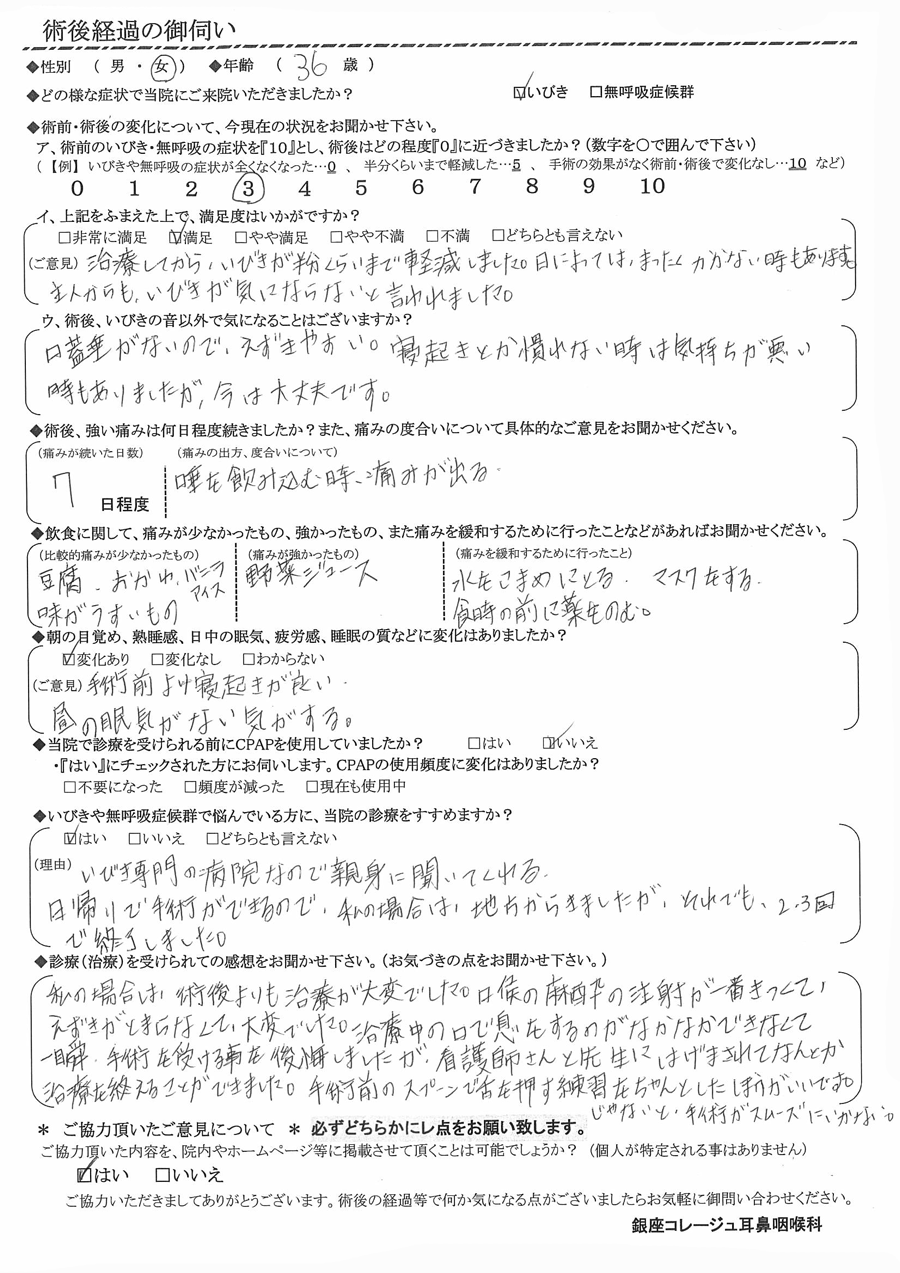 術後経過の御伺い
◆性別 ( 男 ・ 女 ) ◆年齢 ( 36 歳 )
◆どの様な症状で当院にご来院いただきましたか? ☑いびき □無呼吸症候群
◆術前・術後の変化について、今現在の状況をお聞かせ下さい。
ア、術前のいびき・無呼吸の症状を『10』とし、術後はどの程度『0』に近づきましたか?(数字を○で囲んで下さい)
(【例】いびきや無呼吸の症状が全くなくなった…0 、 半分くらいまで軽減した…5 、 手術の効果がなく術前・術後で変化なし…10 など)
0 1 2 3 4 5 6 7 8 9 10
イ、上記をふまえた上で、満足度はいかがですか?
□非常に満足 ☑満足 □やや満足 □やや不満 □不満 □どちらとも言えない
(ご意見) 治療してから、いびきが半分くらいまで軽減しました。日によっては、まったくかかない時もあります。
主人からも、いびきが気にならないと言われました。
ウ、術後、いびきの音以外で気になることはございますか?
口蓋垂がないので、えずきやすい。寝起きとか慣れない時は気持ちが悪い
時もありましたが、今は大丈夫です。
◆術後、強い痛みは何日程度続きましたか?また、痛みの度合いについて具体的なご意見をお聞かせください。
(痛みが続いた日数) (痛みの出方、度合いについて)
7 日程度 唾を飲み込む時、痛みが出る。
◆飲食に関して、痛みが少なかったもの、強かったもの、また痛みを緩和するために行ったことなどがあればお聞かせください。
(比較的痛みが少なかったもの) (痛みが強かったもの) (痛みを緩和するために行ったこと)
豆腐、おかゆ、バニラアイス 野菜ジュース 水をこまめにとる。 マスクをする。
味がうすいもの 食時の前に薬をのむ。
◆朝の目覚め、熟睡感、日中の眠気、疲労感、睡眠の質などに変化はありましたか?
☑変化あり □変化なし □わからない
(ご意見) 手術前より寝起きが良い。
昼の眠気がない気がする。
◆当院で診療を受けられる前にCPAPを使用していましたか? □はい ☑いいえ
・『はい』にチェックされた方にお伺いします。CPAPの使用頻度に変化はありましたか?
□不要になった □頻度が減った □現在も使用中
◆いびきや無呼吸症候群で悩んでいる方に、当院の診療をすすめますか?
☑はい □いいえ □どちらとも言えない
(理由) いびき専門の病院なので親身に聞いてくれる。
日帰りで手術ができるので、私の場合は、地方からきましたが、それでも、2.3回
で終了しました。
◆診療(治療)を受けられての感想をお聞かせ下さい。(お気づきの点をお聞かせ下さい。)
私の場合は、術後よりも治療が大変でした。口候の麻酔の注射が一番きつくて、
えずきがとまらなくて、大変でした。治療中の口で息をするのがなかなかできなくて
一瞬、手術を受ける事を後悔しましたが、看護師さんと先生にはげまされてなんとか
治療を終えることができました。手術前のスプーンで舌を押す練習をちゃんとしたほうがいいです。
じゃないと、手術がスムーズにいかない。
* ご協力頂いたご意見について * 必ずどちらかにレ点をお願い致します。
ご協力頂いた内容を、院内やホームページ等に掲載させて頂くことは可能でしょうか? (個人が特定される事はありません)
☑はい □いいえ
ご協力いただきましてありがとうございます。術後の経過等で何か気になる点がございましたらお気軽に御問い合わせください。
銀座コレージュ耳鼻咽喉科